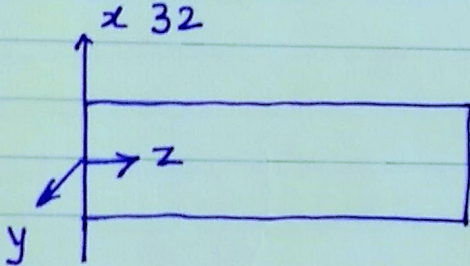 x 32
z
y